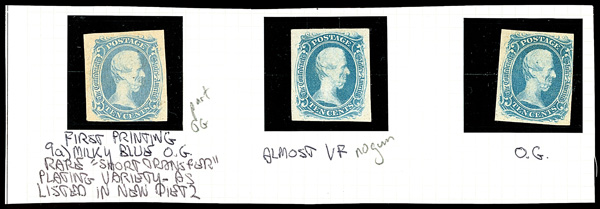 POSTAGE
TEN CENTS
POSTAGE
TEN CENTS
POSTAGE
TEN CENTS
part
OG
FIRST PRINTING
9a) MILKY BLUE O.G.
RARE "SHORT TRANSFER"
PLATING VARIETY - AS
LISTED IN NEW DIETZ
ALMOST VF no gum
O.G.